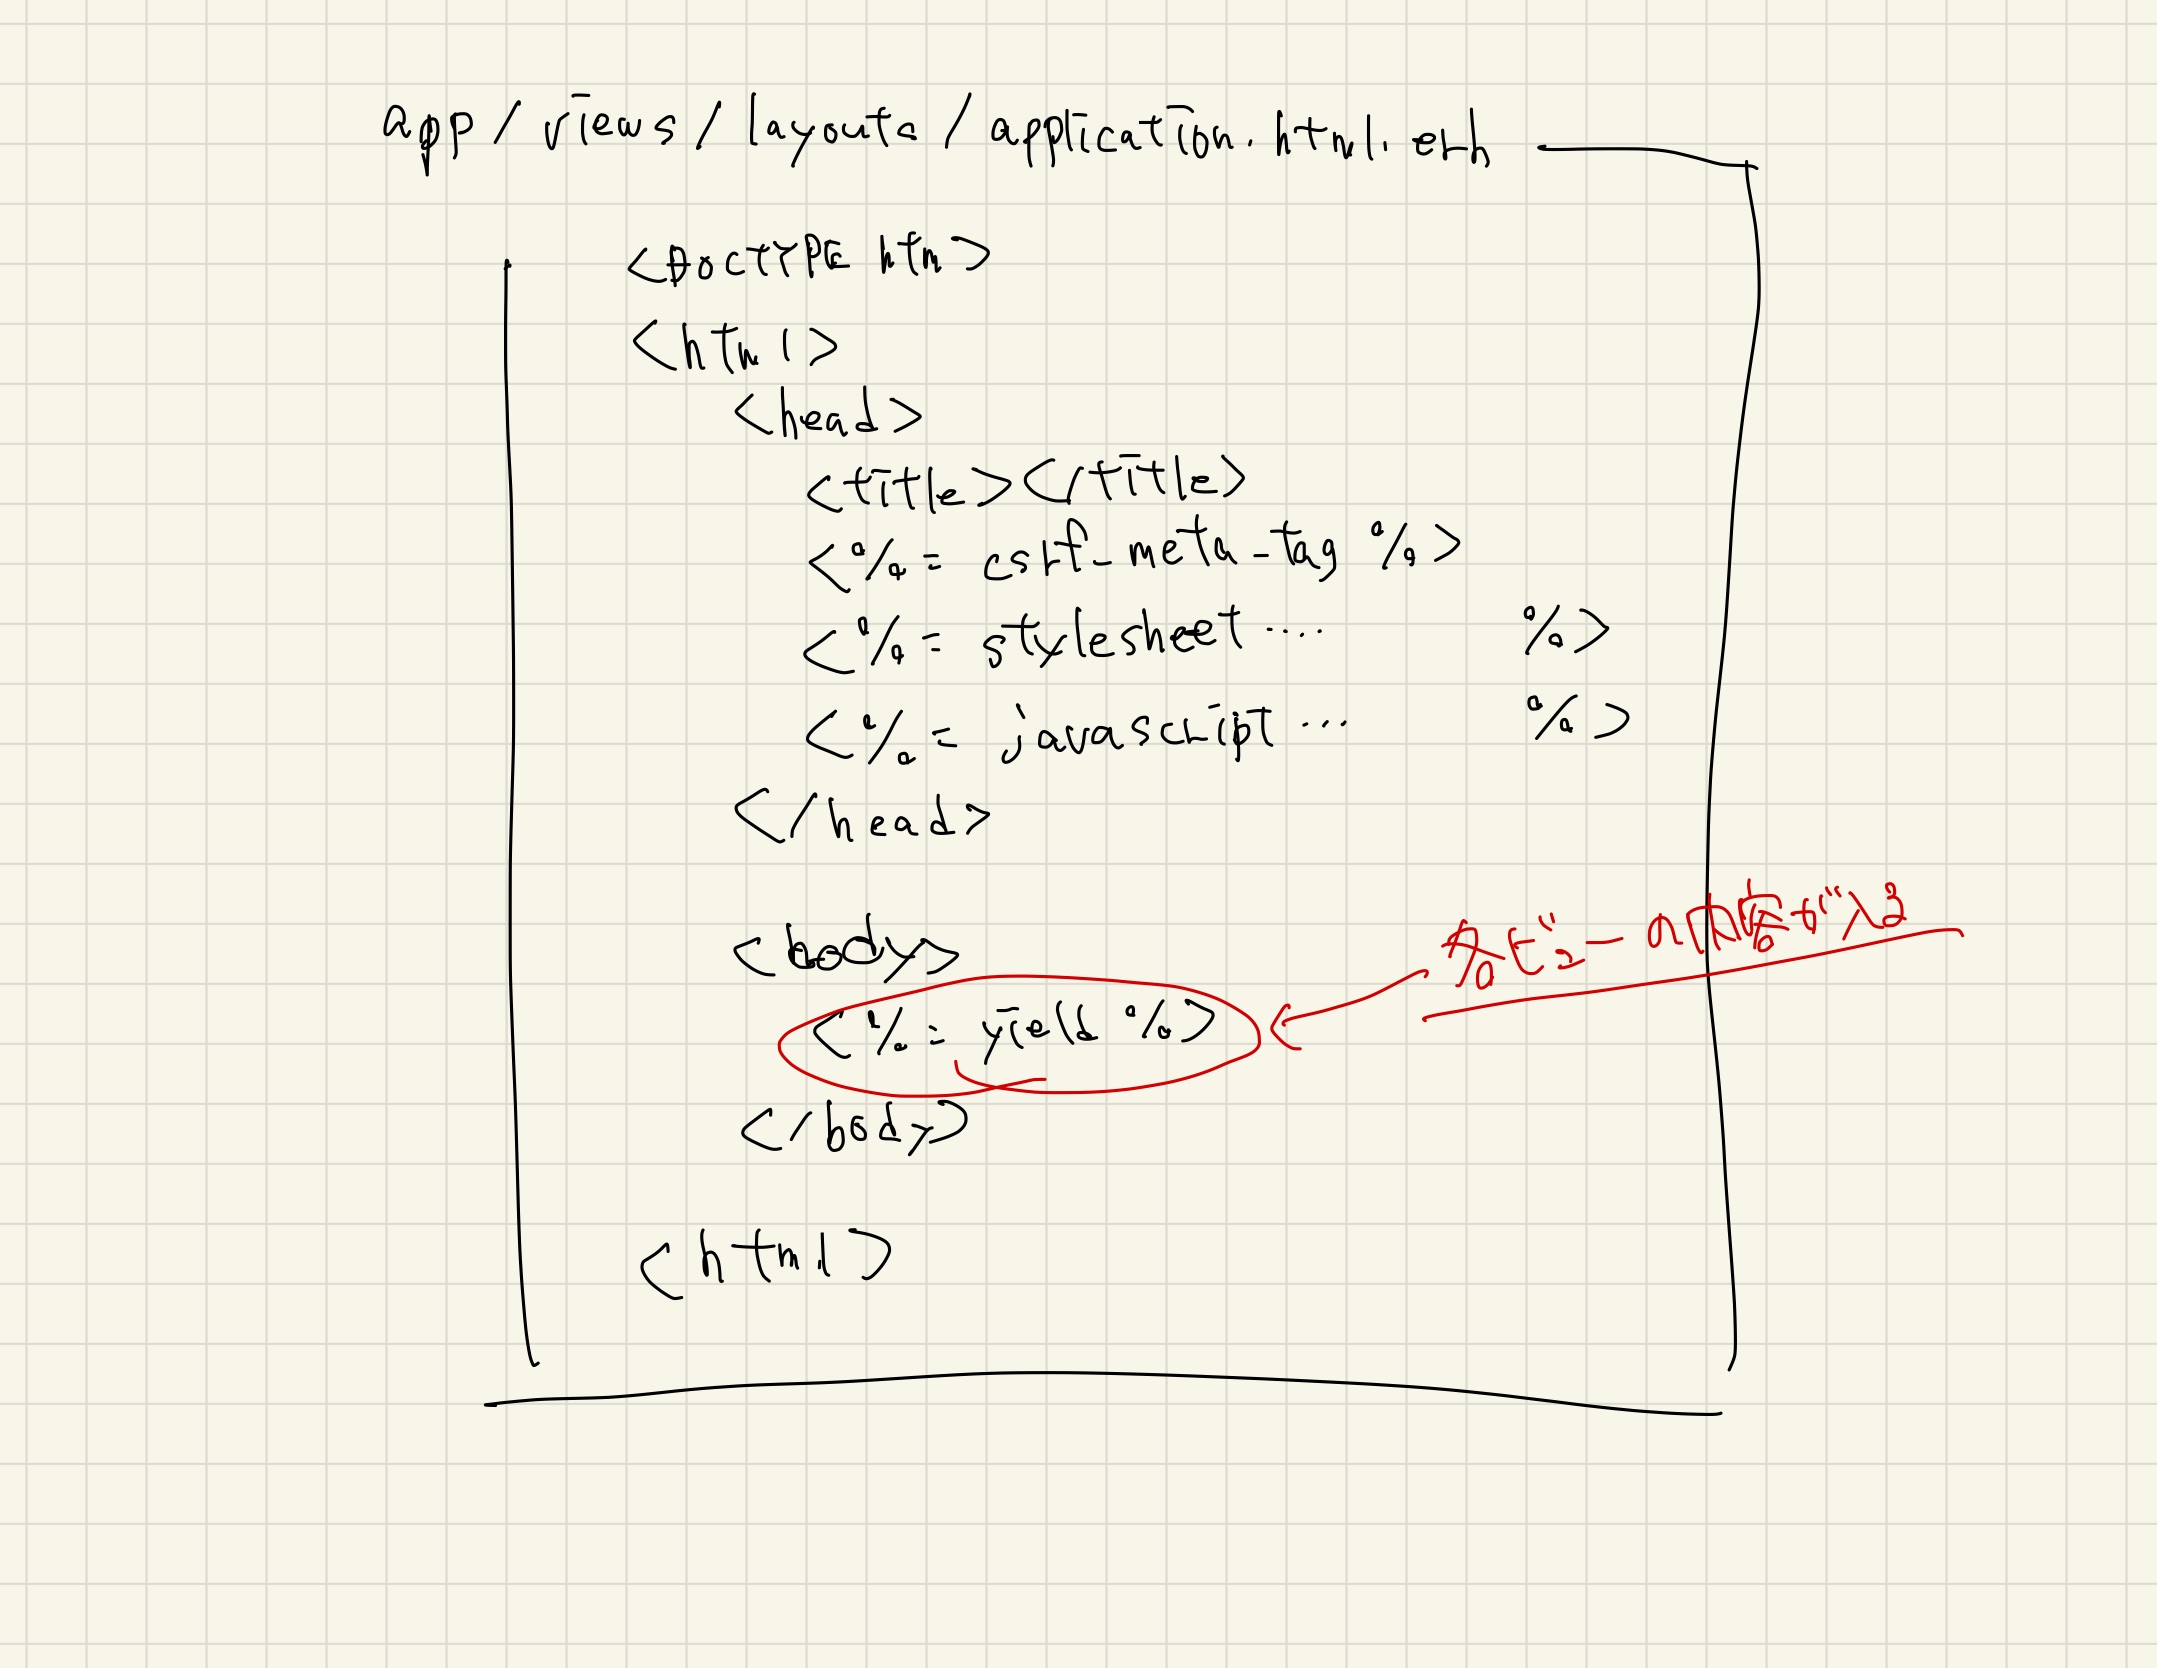 app/views/layouts/application.html.erb
<DOCTYPE htm>
<html>
<head>
<title></title>
<%= csrf_meta_tag %>
<%= stylesheet .... %>
<%= javascript ... %>
</head>
<body>
各ビューの内容が入る
<%= yield %>
</body>
<html>